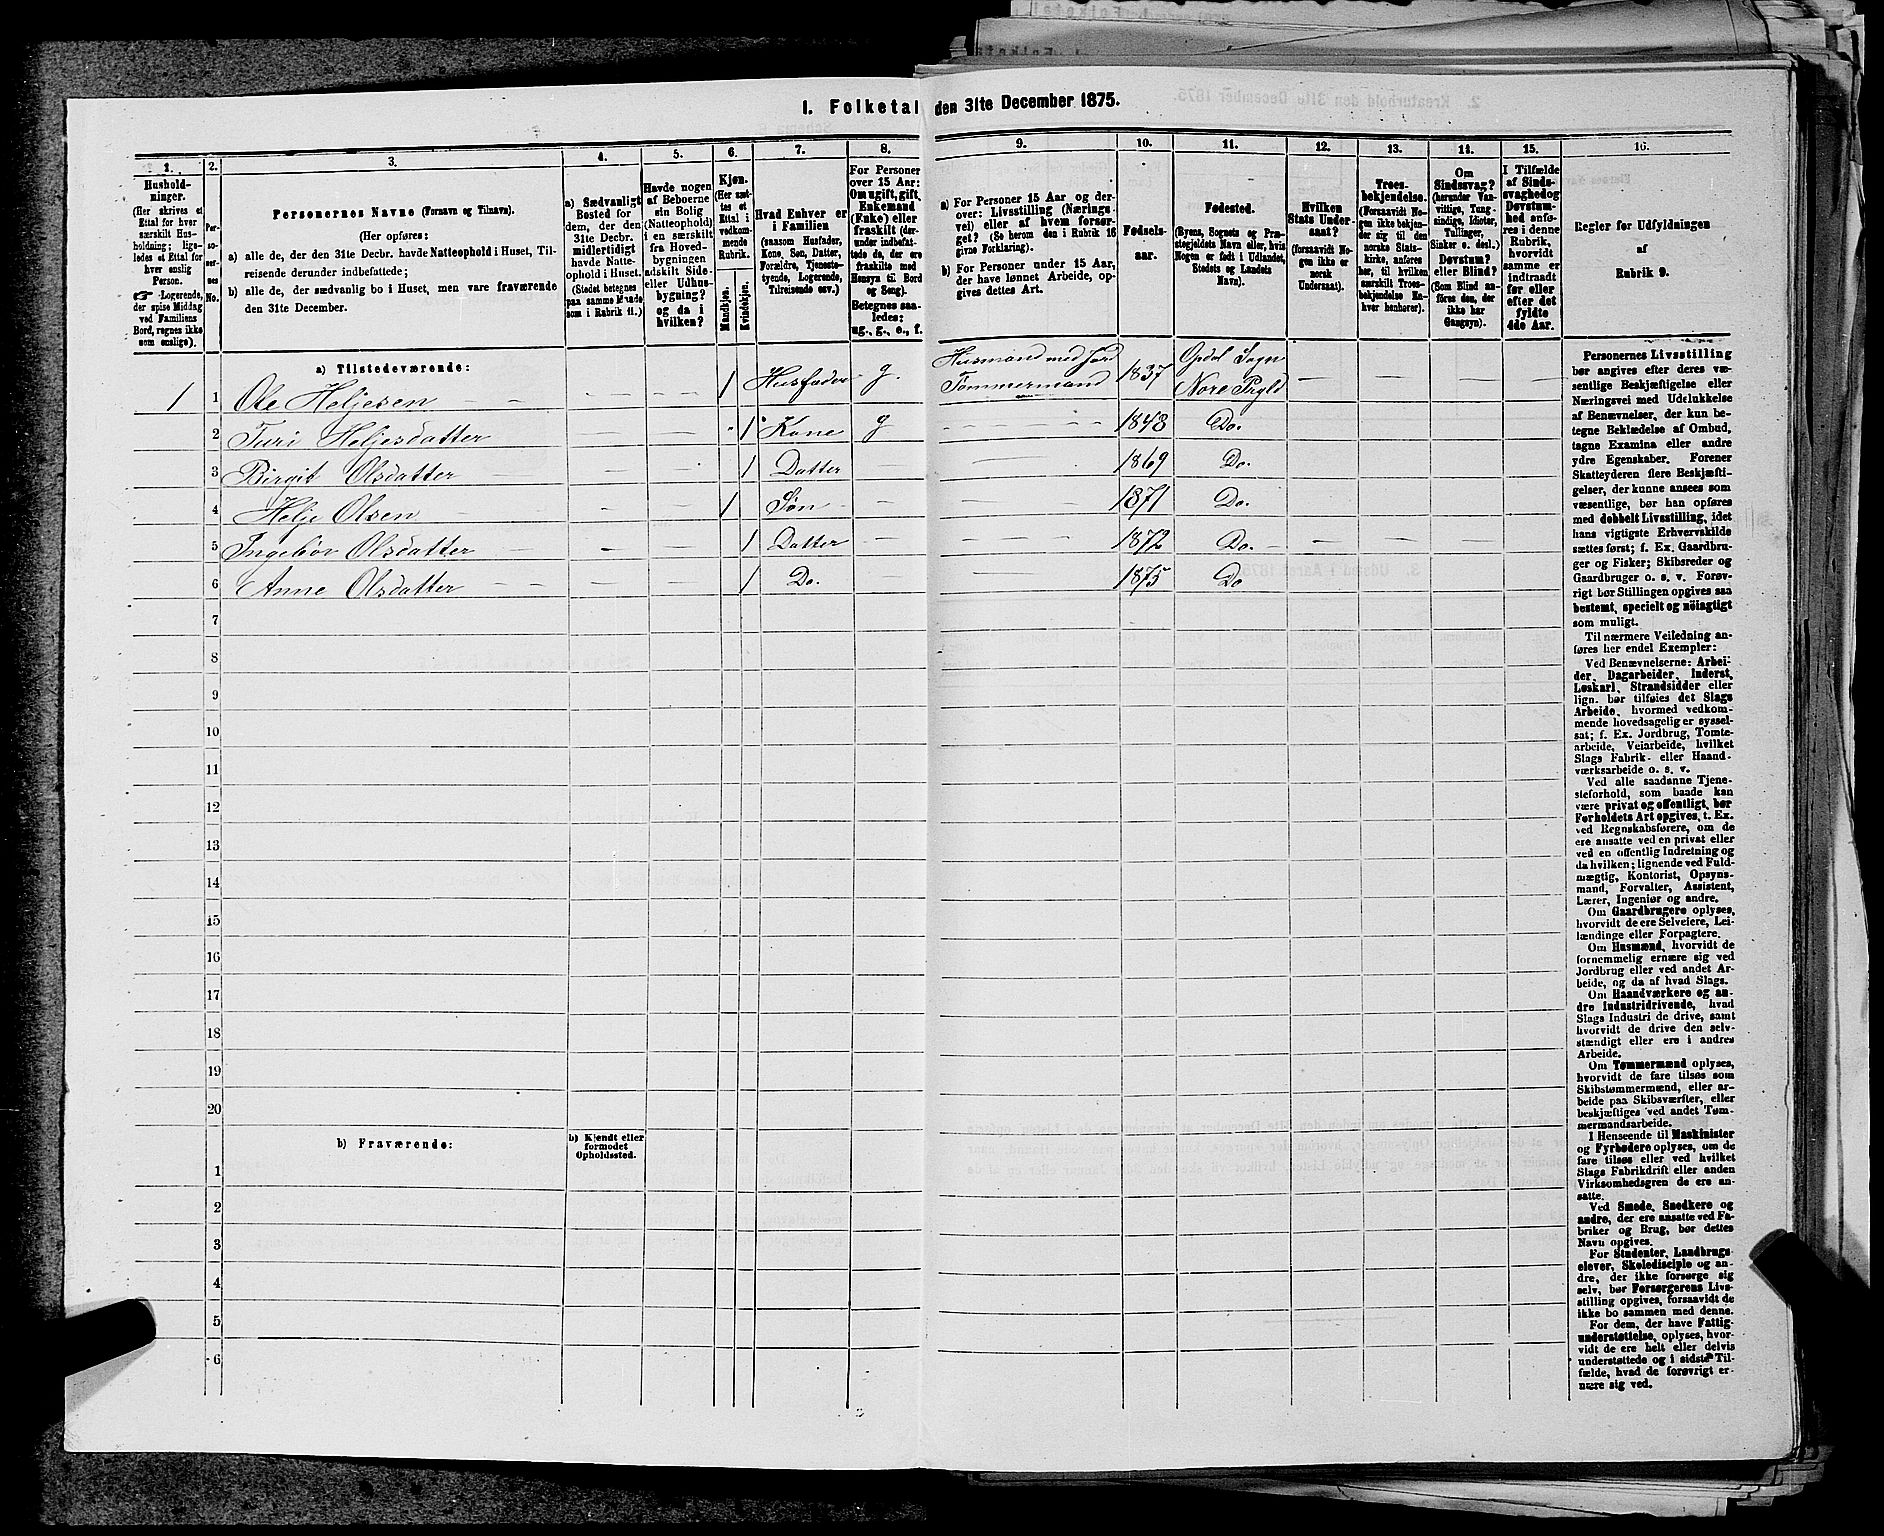 1. Folketal den 31te December 1875.
1.
2.
3.
4.
5.
6.
7.
8.
9.
10.
11.
12.
13.
14.
15.
16.
Husholdninger.
(Her skrives et
Ettal for hver
særskilt Husholdning;
ligeledes et Ettal for
hver enslig
Person.
☞ Logerende,
der spise Middag
ved Familiens
Bord, regnes ikke
som enslige).
Personernes No.
Personernes Navne (Fornavn og Tilnavn).
(Her opføres:
a) alle de, der den 31te Decbr. havde Natteophold i Huset, Tilreisende derunder indbefattede;
b) alle de, der sædvanlig bo i Huset, men vare fraværende den 31te December.
a) Sædvanligt
Bosted for
dem, der den
31te Decbr.
midlertidigt
havde Natteophold i Huset.
(Stedet betegnes
paa samme Maade
som i Rubrik 11.)
Havde nogen
af Beboerne
sin Bolig
(Natteophold)
i en særskilt
fra Hovedbygningen
adskilt Side-
eller Udhusbygning?
og da i
hvilken?
Kjøn.
(Her sættes et
Ettal i
vedkommende
Rubrik.
Mandkjøn.
Kvindekjøn.
Hvad Enhver er
i Familien
(saasom Husfader,
Kone, Søn, Datter,
Forældre, Tjenestetyende, Logerende,
Tilreisende osv.)
For Personer
over 15 Aar:
Om ugift, gift,
Enkemand
(Enke) eller
fraskilt (derunder indbefattede de, der ere
fraskilte med
Hensyn til Bord
og Seng).
Betegnes saaledes:
ug., g., e., f.
a) For Personer 15 Aar og derover: Livsstilling (Næringsvei) eller af hvem forsørget? (Se herom den i Rubrik 16
givne Forklaring).
b) For Personer under 15 Aar,
der have lønnet Arbeide, opgives dettes Art.
Fødselsaar.
Fødested.
(Byens, Sognets og Præstegjeldets Navn eller, hvis
Nogen er født i Udlandet,
Stedets og Landets
Navn).
Hvilken
Stats Undersaat?
(forsaavidt Nogen ikke er
norsk
Undersaat).
Troesbekjendelse.
(Forsaavidt Nogen ikke bekjender sig til den
norske Statskirke, anføres
her, til hvilken
særskilt Troesbekjendelse Enhver henhører).
Om
Sindssvag?
(herunder Vanvittige, Tungsindige, Idioter,
Tullinger,
Sinker o. desl.)
Døvstum?
eller Blind?
(Som Blind anføres den, der
ikke har
Gangsyn).
I Tilfælde
af Sindssvaghed og
Døvstumhed anføres i denne
Rubrik,
hvorvidt
samme er
indtraadt
før eller
efter det
fyldte
4de Aar.
Regler for Udfyldningen
af
Rubrik 9.
a) Tilstedeværende:
1 1 Ole Heljesen — — — 1 Husfader g. Husmand med Jord Tømmermand 1837 Opdal Sogn Nore Prgld — — — —
2 Turi Heljesdatter — — — 1 Kone g — — — 1843 Do.
3 Birgit Olsdatter — — — 1 Datter — — 1869 Do.
4 Helje Olsen — — 1 Søn — — 1871 Do.
5 Ingebor Olsdatter — — — 1 Datter — — 1872 Do. — — — —
6 Anne Olsdatter — — — 1 Do. — — 1875 Do
7
8
9
10
11
12
13
14
15
16
17
18
19
20
b) Fraværende:
b) Kjendt eller
formodet
Opholdssted.
1
2
3
4
5
6
Personernes Livsstilling
bør angives efter deres væsentlige Beskjæftigelse eller
Næringsvei med Udelukkelse
af Benævnelser, der kun betegne Beklædelse af Ombud,
tagne Examina eller andre
ydre Egenskaber. Forener
Skatteyderen flere Beskjæftigelser, der kunne ansees som
væsentlige, bør han opføres
med dobbelt Livsstilling, idet
hans vigtigste Erhvervskilde
sættes først; f. Ex. Gaardbruger og Fisker; Skibsreder og
Gaardbruger o. s. v. Forøvrigt bør Stillingen opgives saa
bestemt, specielt og nöiagtigt
som muligt.
Til nærmere Veiledning anføres her endel Exempler:
Ved Benævnelserne: Arbeider, Dagarbeider, Inderst,
Løskarl, Strandsidder eller
lign. bør tilføies det Slags
Arbeide, hvormed vedkommende hovedsagelig er sysselsat; f. Ex. Jordbrug, Tomtearbeide, Veiarbeide, hvilket
Slags Fabrik- eller Haandværksarbeide o. s. v.
Ved alle saadanne Tjenesteforhold, som baade kan
være privat og offentligt, bør
Forholdets Art opgives, t. Ex.
ved Regnskabsførere, om de
ere ansatte ved en privat eller
ved en offentlig Indretning og
da hvilken; lignende ved Fuldmægtig, Kontorist, Opsynsmand, Forvalter, Assistent,
Lærer, Ingeniør og andre.
Om Gaardbrugere oplyses,
hvorvidt de ere Selveiere, Leilændinge eller Forpagtere.
Om Husmænd, hvorvidt de
fornemmelig ernære sig ved
Jordbrug eller ved andet Arbeide, og da af hvad Slags.
Om Haandværkere og andre Industridrivende, hvad
Slags Industri de drive, samt
hvorvidt de drive den selvstændigt eller ere i andres
Arbeide.
Om Tømmermænd oplyses,
hvorvidt de fare tilsøs som
Skibstømmermænd, eller arbeide paa Skibsværfter, eller
beskjæftiges ved andet Tømmermandsarbeide.
I Henseende til Maskinister
og Fyrbødere oplyses, om de
fare tilsøs eller ved hvilket
Slags Fabrikdrift eller anden
Virksomhedsgren de ere ansatte.
Ved Smede, Snedkere og
andre, der ere ansatte ved Fabriker og Brug, bør dettes
Navn opgives.
For Studenter, Landbrugselever, Skoledisciple og andre, der ikke forsørge sig
selv, bør Forsørgerens Livsstilling opgives, forsaavidt de
ikke bo sammen med denne.
For dem, der have Fattigunderstøttelse, oplyses, hvorvidt de ere helt eller delvis
understøttede og i sidste Tilfælde, hvad de forøvrigt ernære sig ved.